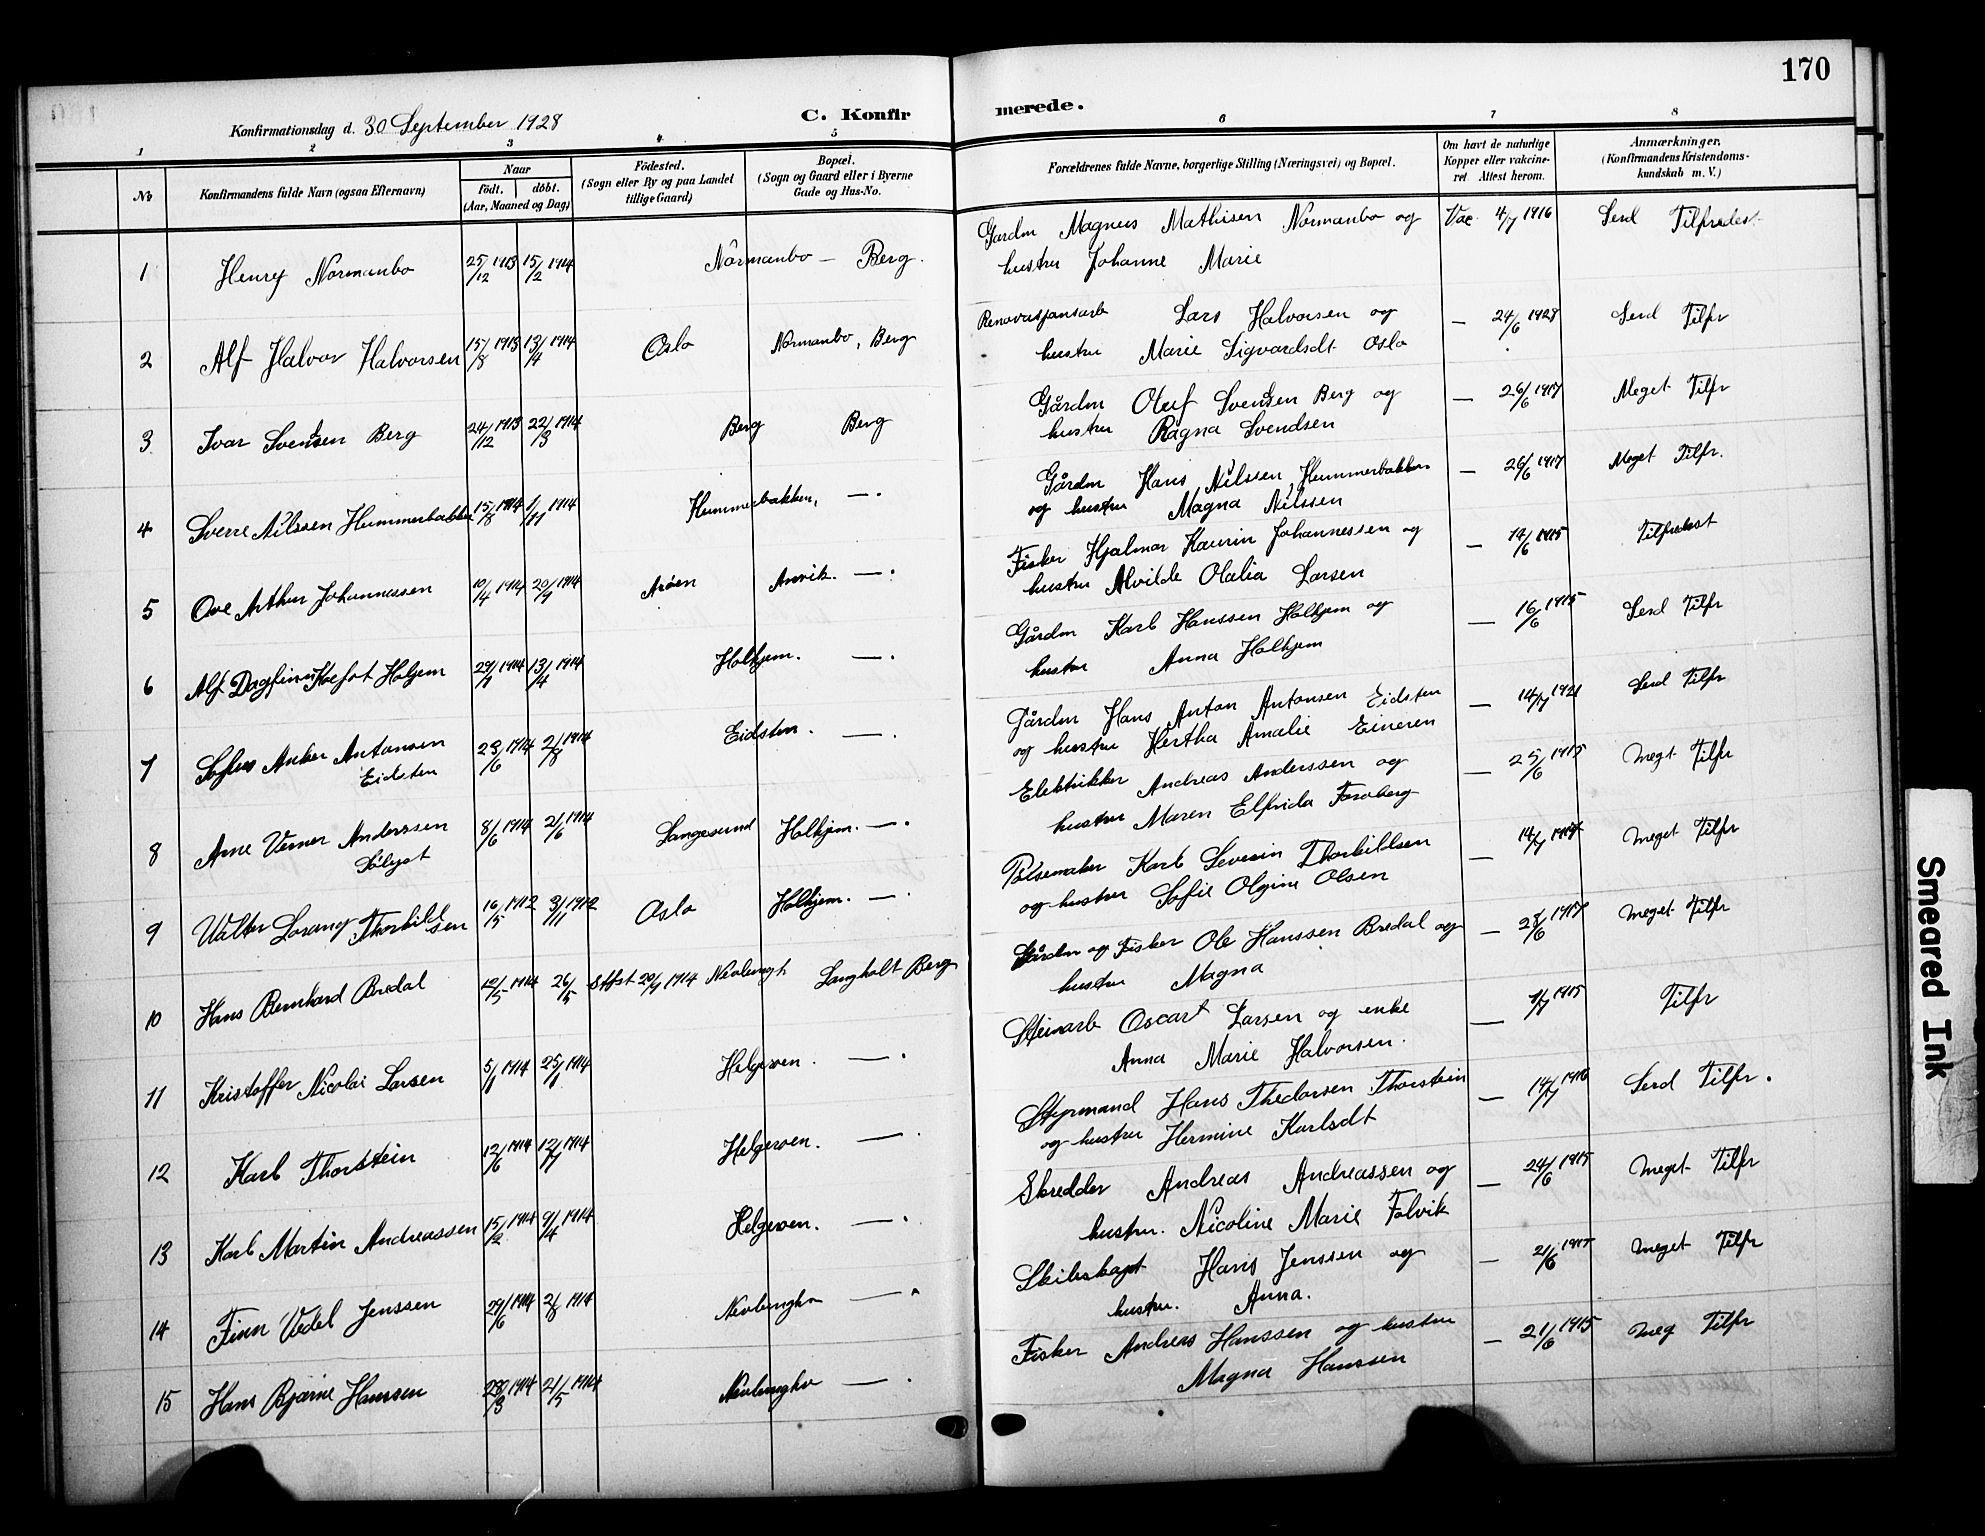 170
Konfirmationsdag d. 30 September 1928
C. Konfirmerede.
1 2 3 4 5 6 7 8
No
Konfirmandens fulde Navn (ogsaa Efternavn)
Naar
födt. döbt.
(Aar, Maaned og Dag)
Födested.
(Sogn eller By og paa Landet
tillige Gaard)
Bopæl.
(Sogn og Gaard eller i Byerne
Gade og Hus-No.
Forældrenes fulde Navne, borgerlige Stilling (Næringsvei) og Bopæl.
Om havt de naturlige
Kopper eller vaccineret
Attest herom.
Anmærkninger,
(Konfirmandens Kristendomskundskab
m. V.)
1 Henry Normanbo 25/12 1913 15/2 1914 Normanbo — Berg.
Gardm Magnus Mathisen Normanbo og Vac 4/7 1916 Serd Tilfredst.
hustru Johanne Marie
2 Alf Halvor Halvorsen 15/8 1913 13/4 1914 Oslo Normanbo, Berg
Renovasjonsarb Lars Halvorsen og — 24/6 1928 Serd Tilfr
hustru Marie Sigvardsdt Oslo
3 Ivar Svendsen Berg 24/12 1913 22/3 1914 Berg Berg
Gårdm Oluf Svendsen Berg og — 26/6 1917 Meget Tilfr
hustru Ragna Svendsen
4 Sverre Nilssen Hummerbakken 15/8 1914 1/11 1914 Hummerbakken, —.
Gårdm Hans Nilssen, Hummerbakken — 26/6 1917 Meget Tilfr.
og hustru Magna Nilssen
5 Ove Arthur Johannessen 10/4 1914 20/9 1914 Arøen Anvik. —.
Fisker Hjalmar Kaurin Johannessen og — 14/6 1915 Tilfredsst
hustru Alvilde Olalia Larsen
6 Alf Dagfinn Holjem 29/1 1914 13/4 1914 Holkjem. —.
Gårdm Karl Hanssen Holkjem og — 16/6 1915 Serd Tilfr
hustru Anna Holkjem
7 Sofus Anker Antonsen 23/6 1914 2/8 1914 Eidsten. —.
Eidsten
Gårdm Hans Anton Antonsen Eidsten — 14/7 1921 Serd Tilfr
og hustru Hertha Amalie Eineren
8 Arne Verner Anderssen 8/6 1914 2/6 1914 Langesund Holkjem. —.
Sølyst
Elektrikker Andreas Anderssen og — 25/6 1915 Megt Tilfr
hustru Maren Elfrida
9 Walter Lorang Thorkildsen 16/5 1912 3/11 1912 Oslo Holkjem. —.
Pølsemaker Karl Severin Thorkildsen — 14/7 1917 Meget Tilfr
og hustru Sofie Olgine Olsen
10 Hans Bernhard Bredal 10/5 1914 26/5 Stfst 20/9 1914 Nevlungh Langholt Berg
Gårdm og Fisker Ole Hanssen Bredal og — 28/6 1917 Meget Tilfr
hustru Magna
11 Kristoffer Nicolai Larsen 5/1 1914 25/1 1914 Helgeroen. —.
Steinarb Oscar Larsen og enke — 1/7 1915 Tilfr
Anna Marie Halvorsen.
12 Karl Thorstein 12/6 1914 12/7 1914 Helgeroen. —.
Styrmand Hans Thedorsen Thorstein — 14/7 1916 Serd Tilfr.
og hustru Hermine Karlsdt
13 Karl Martin Andreassen 15/2 1914 9/4 1914 Helgeroen. —.
Skredder Andreas Andreassen og — 24/6 1915 Meget Tilfr
hustru. Nicoline Marie Følvik
14 Finn Vedel Jenssen 29/6 1914 2/8 1914 Nevlunghn —.
Skibskapt Hans Jenssen og — 21/6 Meget Tilfr
hustru. Anna.
15 Hans Bjarne Hanssen 28/3 1914 21/5 1914 Nevlunghv —.
Fisker Andreas Hanssen og hustru — 21/6 1915 Meg Tilfr
Magna Hanssen
Smeared Ink